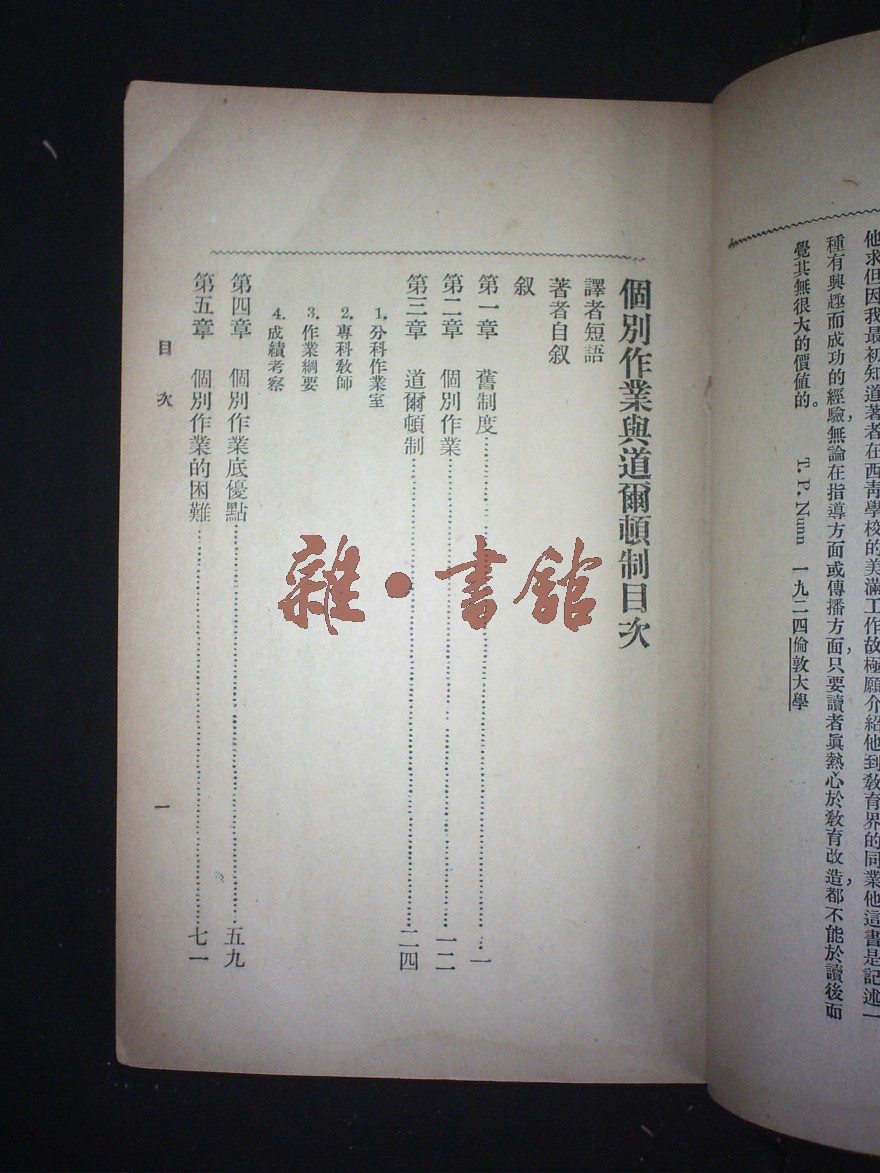 他求但因我最初知道著者在西靑學校的美滿工作故極願介紹他到敎育界的同業他這書是記述一
種有興趣而成功的經驗，無論在指導方面或傳播方面，只要讀者眞熱心於敎育改造，都不能於讀後而
覺其無很大的價値的。
T. P. Nunn 一九二四倫敦大學
個別作業與道爾頓制目次
譯者短語
著者自叙
叙
第一章 舊制度……一
第二章 個別作業……一二
第三章 道爾頓制……二四
1. 分科作業室
2. 專科敎師
3. 作業綱要
4. 成績考察
第四章 個別作業底優點……五九
第五章 個別作業的困難……七一
目次
一
雜·書館